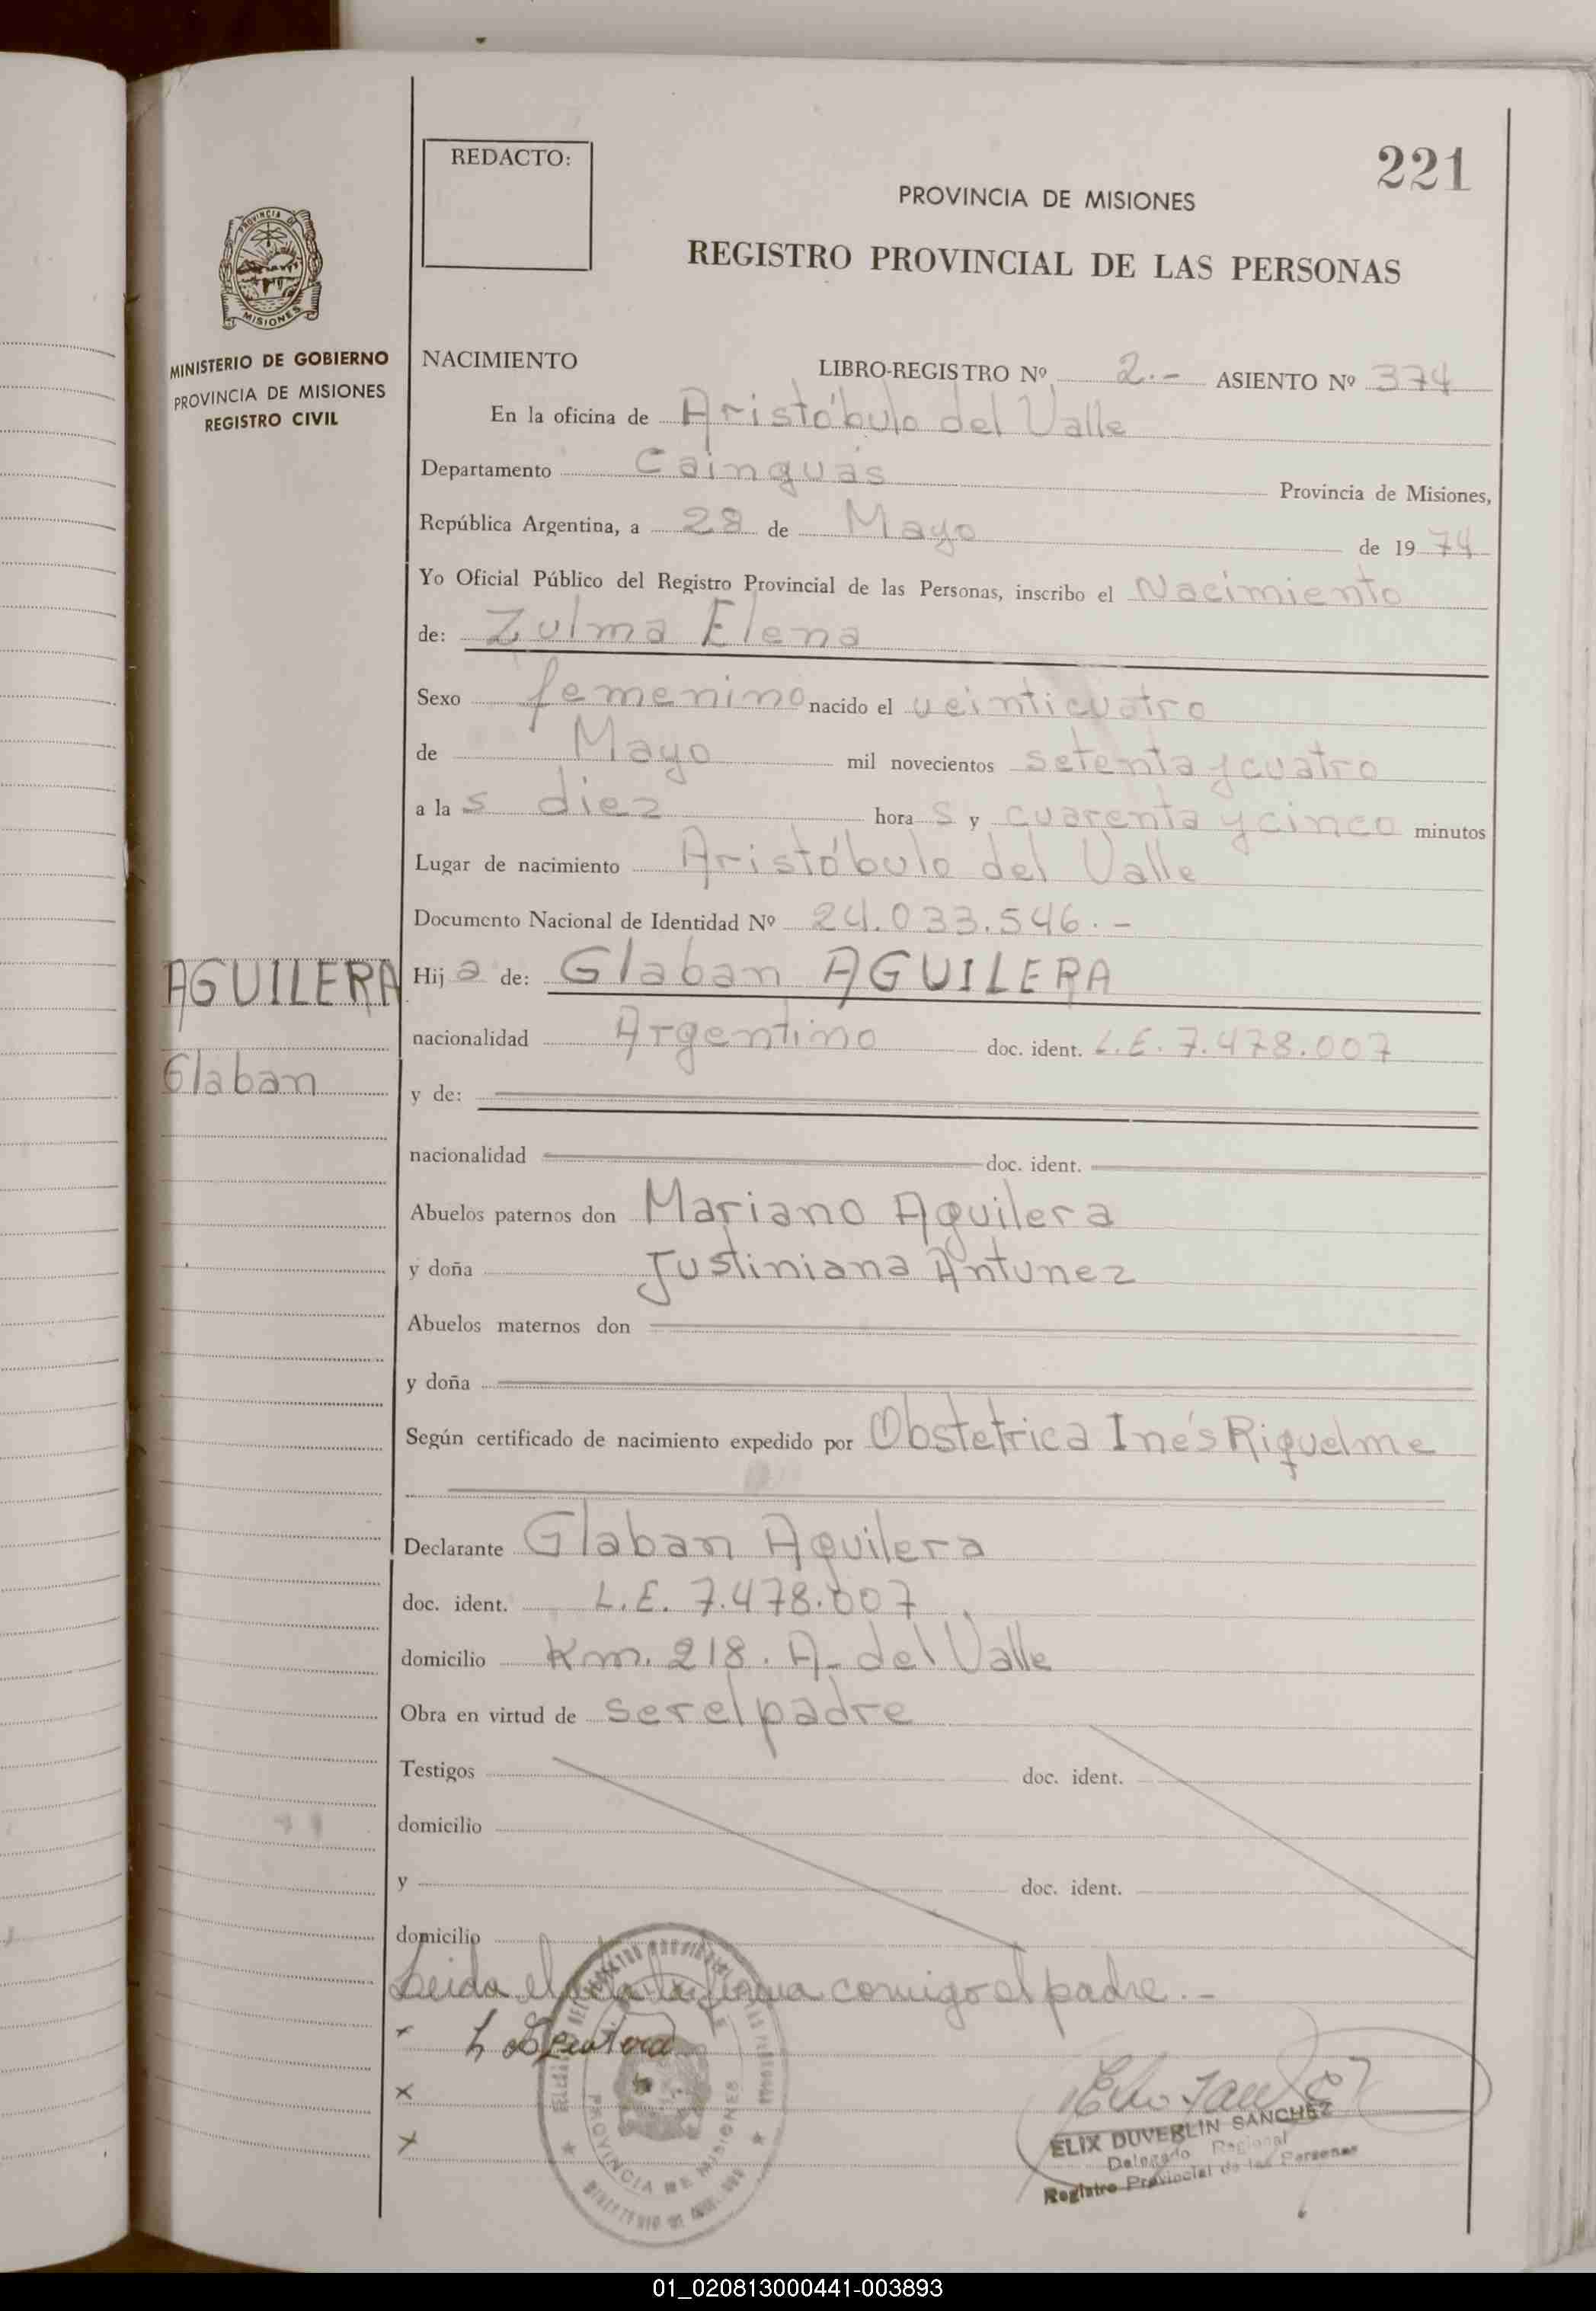 221
REDACTO:
PROVINCIA DE MISIONES
REGISTRO PROVINCIAL DE LAS PERSONAS
MISIONES
MINISTERIO DE GOBIERNO
PROVINCIA DE MISIONES
REGISTRO CIVIL
NACIMIENTO LIBRO-REGISTRO Nº 2.- ASIENTO Nº 374
En la oficina de Aristóbulo del Valle
Departamento Cainguás Provincia de Misiones,
República Argentina, a 28 de Mayo de 1974
Yo Oficial Público del Registro Provincial de las Personas, inscribo el Nacimiento
de: Zulma Elena
Sexo femenino nacido el veinticuatro
de Mayo mil novecientos setenta y cuatro
a las diez horas y cuarenta y cinco minutos
Lugar de nacimiento Aristóbulo del Valle
Documento Nacional de Identidad Nº 24.033.546.-
AGUILERA
Glaban
Hija de: Glaban AGUILERA
nacionalidad Argentino doc. ident. L.E. 7.478.007
y de:
nacionalidad doc. ident.
Abuelos paternos don Mariano Aguilera
y doña Justiniana Antunez
Abuelos maternos don
y doña
Según certificado de nacimiento expedido por Obstetrica Inés Riquelme
Declarante Glaban Aguilera
doc. ident. L.E. 7.478.007
domicilio Km. 218. A. del Valle
Obra en virtud de ser el padre
Testigos doc. ident.
domicilio
y doc. ident.
domicilio
Leida el acta la firma conmigo el padre.-
PROVINCIA DE MISIONES
ELIX DUVERLIN SANCHEZ
Delegado Regional
Registro Provincial de las Personas
01_020813000441-003893